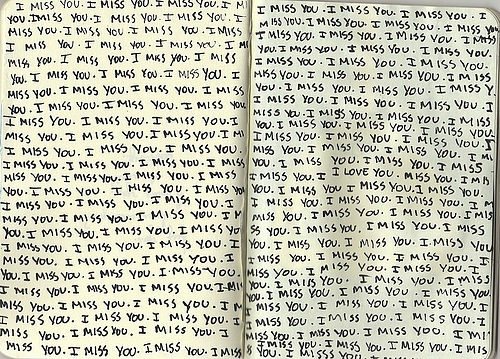 I MISS YOU. I MISS YOU. I MISS YOU. I
MISS YOU. I MISS YOU. I MISS YOU. I
MISS YOU. I MISS YOU. I MISS YOU. I MISS
I MISS YOU. I MISS YOU. I MISS YOU. I M
YOU. I MISS YOU. I MISS YOU. I MISS
YOU. I MISS YOU. I MISS YOU. I MISS YOU. I
MISS YOU. I MISS YOU. I MISS YOU. I MISS
YOU. I MISS YOU. I MISS YOU. I MISS YOU
I MISS YOU. I MISS YOU. I MISS YOU. I
MISS YOU. I MISS YOU. I MISS YOU. I MI
I MISS YOU. I MISS YOU. I MISS YOU.
I MISS YOU. I MISS YOU. I MISS YOU. I MISS
YOU. I MISS YOU. I MISS YOU. I MISS
YOU. I MISS YOU. I MISS YOU. I MISS YOU
I MISS YOU. I MISS YOU. I MISS YOU. I
MISS YOU. I MISS YOU. I MISS YOU. I
YOU. I MISS YOU. I MISS YOU. I MISS
I MISS YOU. I MISS YOU. I MISS YOU. I
MISS YOU. I MISS YOU. I MISS YOU. I MISS
YOU. I MISS YOU. I MISS YOU. I MISS YOU.
I MISS YOU. I MISS YOU. I MISS YOU. I MISS
MISS YOU. I MISS YOU. I MISS YOU. I MISS
I MISS YOU. I MISS YOU. I MISS YOU. I
MISS YOU. I MISS YOU. I MISS YOU. I
MISS YOU. I MISS YOU. I MISS YOU. I MISS
I MISS YOU. I MISS YOU. I MISS YOU. I
MISS YOU. I MISS YOU. I MISS YOU. I MISS YOU
YOU. I MISS YOU. I MISS YOU. I MISS
YOU. I MISS YOU. I MISS YOU. I MISS YOU.
MISS YOU. I MISS YOU. I MISS YOU. I MISS
YOU. I MISS YOU. I MISS YOU. I MISS
MISS YOU. I MISS YOU. I MISS YOU. I MISS
YOU. I MISS YOU. I MISS YOU. I MISS Y
I MISS YOU. I MISS YOU. I MISS YOU. I
MISS YOU. I MISS YOU. I MISS YOU. I MISS
YOU. I MISS YOU. I MISS YOU. I MISS YOU
I MISS YOU. I MISS YOU. I MISS YOU. I
MISS YOU. I MISS YOU. I MISS YOU. I MI
YOU. I MISS YOU. I MISS YOU. I MISS
YOU. I MISS YOU. I LOVE YOU. MISS YOU. I MIS
YOU. I MISS YOU. I MISS YOU. I MISS YOU
I MISS YOU. I MISS YOU. I MISS YOU. I MISS
MISS YOU. I MISS YOU. I MISS YOU. I MISS
YOU. I MISS YOU. I MISS YOU. I MISS
MISS YOU. I MISS YOU. I MISS YOU. I MISS YOU
YOU. I MISS YOU. I MISS YOU. I MISS YOU.
MISS YOU. I MISS YOU. I MISS YOU. I MISS
YOU. I MISS YOU. I MISS YOU. I MISS YOU
I MISS YOU. I MISS YOU. I MISS YOU
MISS YOU. I MISS YOU. I MISS YOU. I
I MISS YOU. I MISS YOU. I MISS YOU. I M
YOU. I MISS YOU. I MISS YOU. I MISS YOU